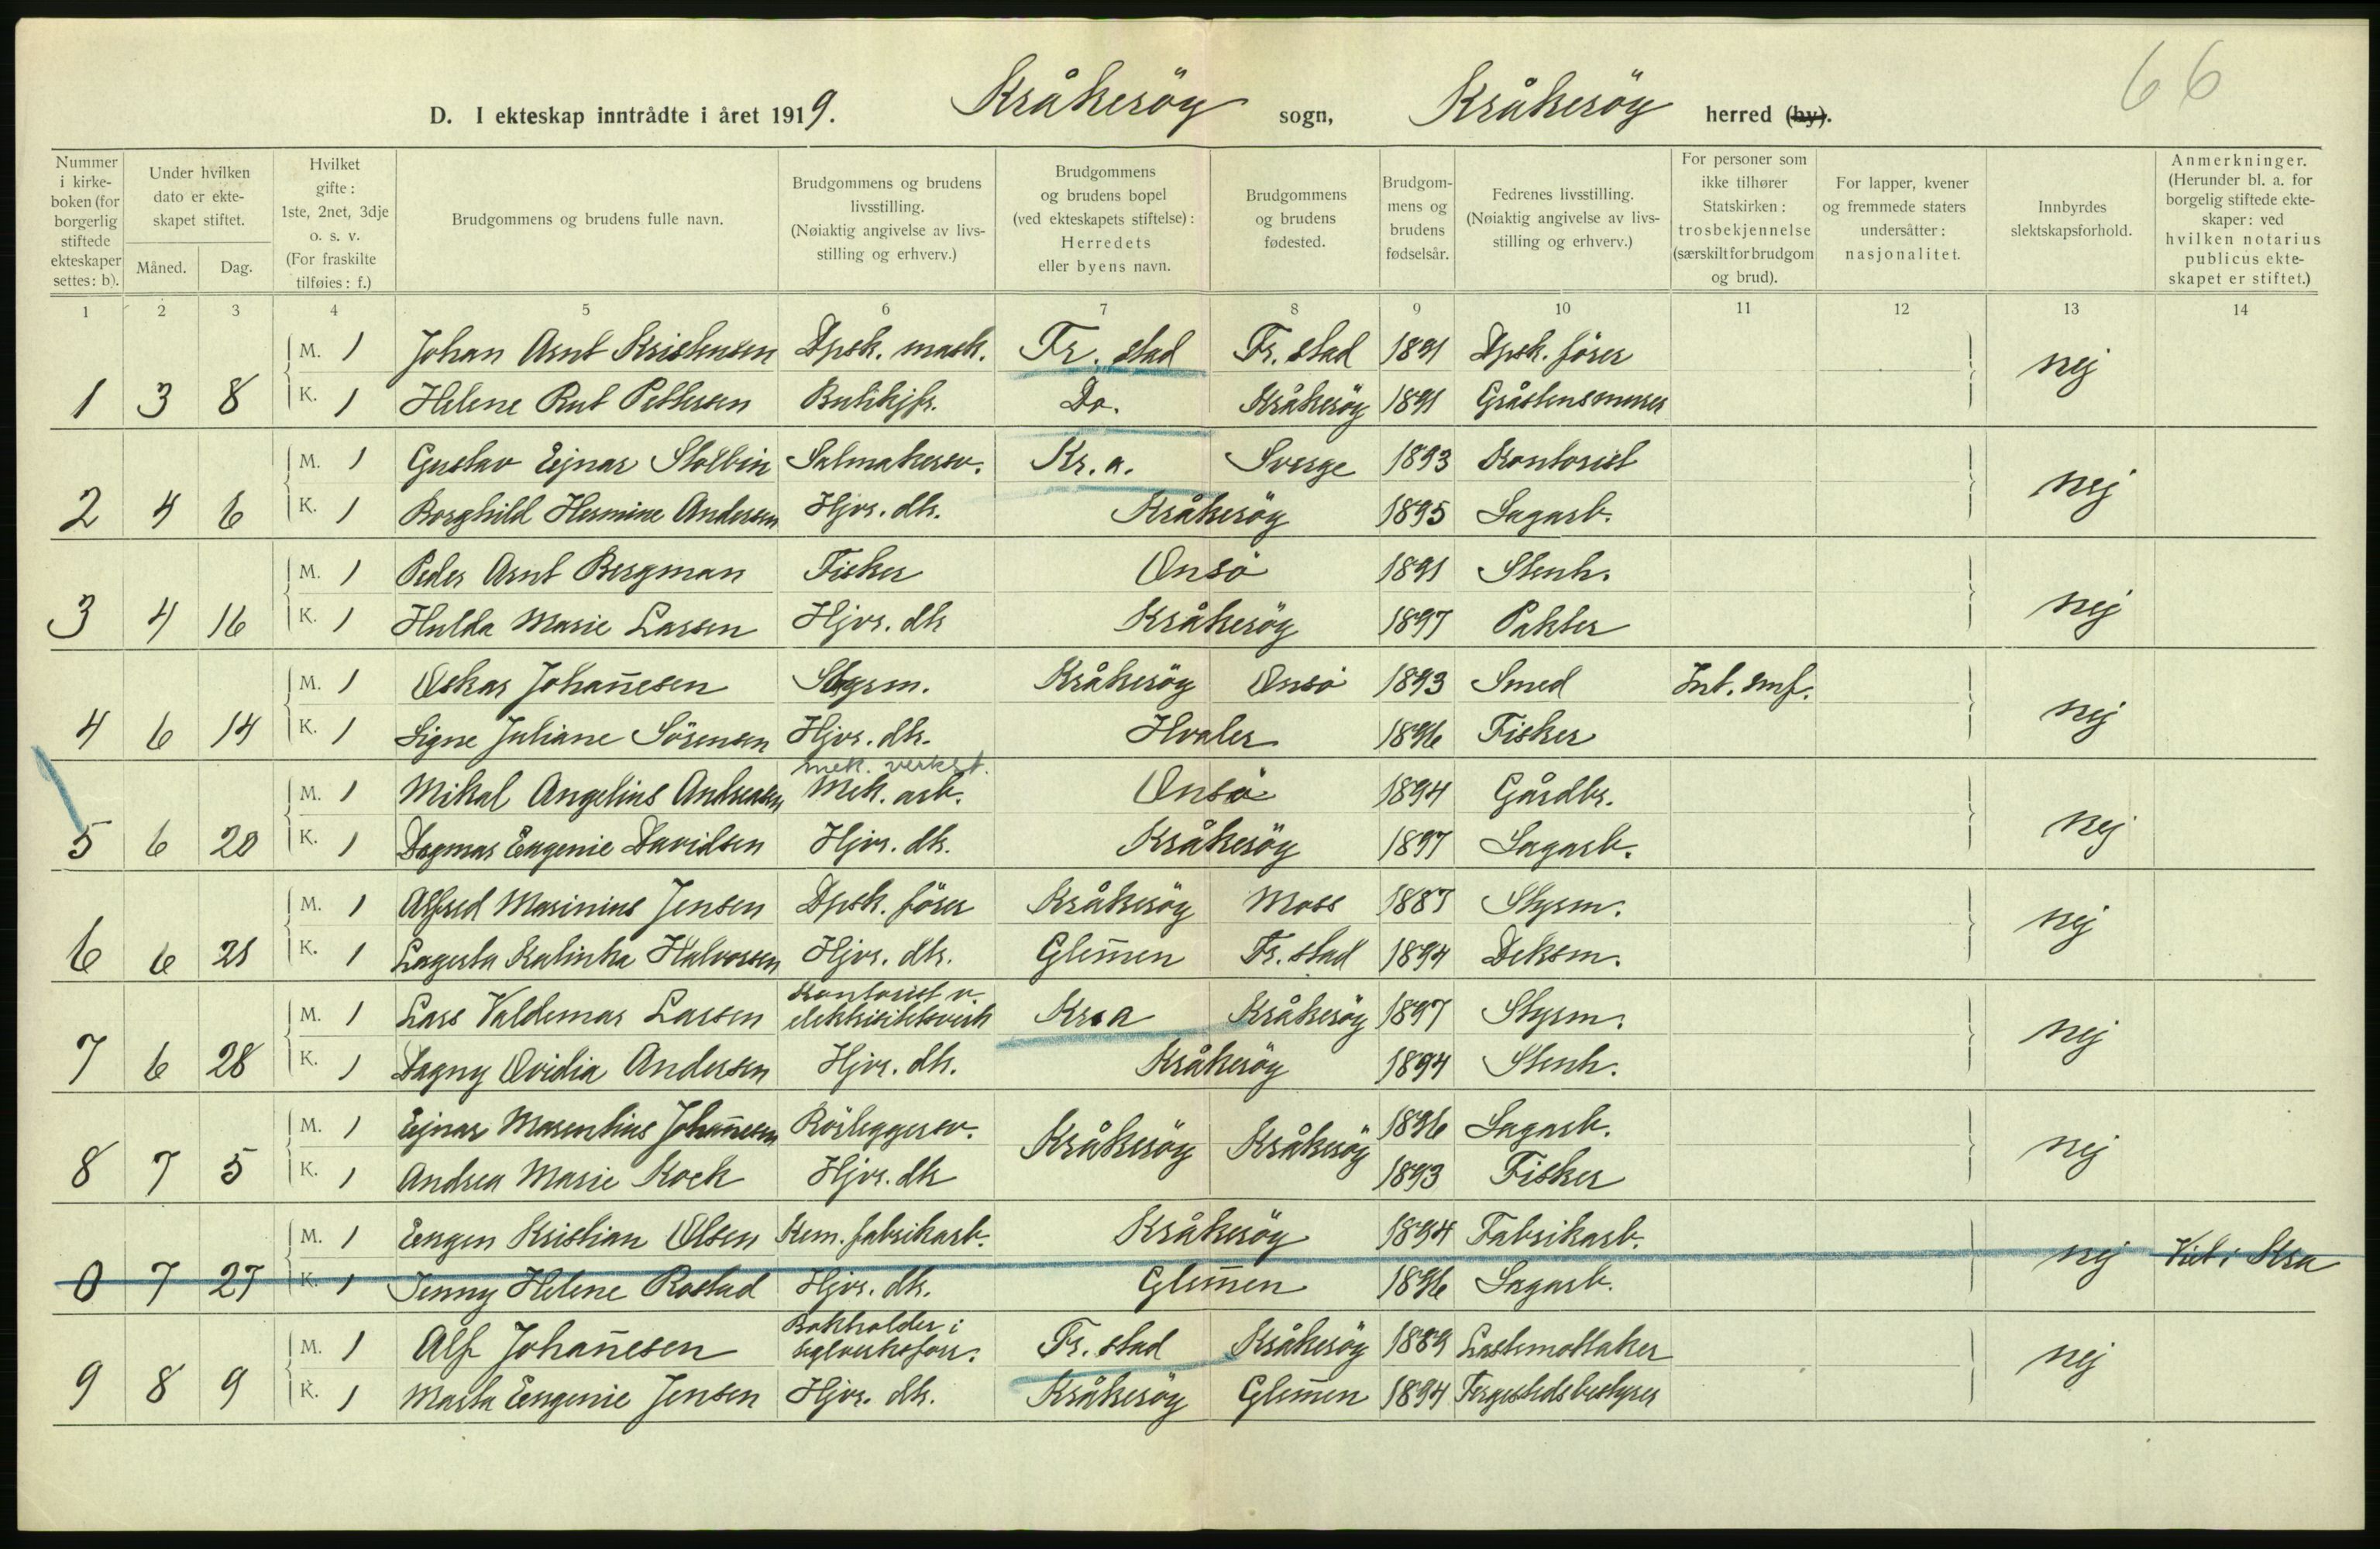 66
D. I ekteskap inntrådte i året 1919. Kråkeröy sogn, Kråkeröy herred (by).
Nummer i kirkeboken (for borgerlig stiftede ekteskaper settes: b). Under hvilken dato er ekteskapet stiftet. Måned. Dag. Hvilket gifte: 1ste, 2net, 3dje o. s. v. (For fraskilte tilføies: f.) Brudgommens og brudens fulle navn. Brudgommens og brudens livsstilling. (Nøiaktig angivelse av livsstilling og erhverv.) Brudgommens og brudens bopel (ved ekteskapets stiftelse): Herredets eller byens navn. Brudgommens og brudens fødested. Brudgommens og brudens fødselsår. Fedrenes livsstilling. (Nøiaktig angivelse av livsstilling og erhverv.) For personer som ikke tilhører Statskirken: trosbekjennelse (særskilt for brudgom og brud). For lapper, kvener og fremmede staters undersåtter: nasjonalitet. Innbyrdes slektskapsforhold. Anmerkninger. (Herunder bl. a. for borgelig stiftede ekteskaper: ved hvilken notarius publicus ekteskapet er stiftet.)
1 2 3 4 5 6 7 8 9 10 11 12 13 14
M. 1 Johan Arnt Kristensen Dpsk. mask. Fr. stad Fr. stad 1891 Dpsk. förer
1 3 8 K. 1 Helene Rut Pettersen Butikjfr. Do. Kråkeröy 1891 Gråstensmurer nej
M. 1 Gustav Ejnar Salmakersv. Kr. a. Sverge 1893 Kontorist
2 4 6 K. 1 Borghild Hermine Andersen Hjvr. dtr. Kråkeröy 1895 Sagarb. nej
M. 1 Peder Arnt Bergman Fisker Onsö 1891 Stenh.
3 4 16 K. 1 Hulda Marie Larsen Hjvr. dtr Kråkeröy 1897 Pakter nej
M. 1 Oskar Johan̄esen Styrm. Kråkeröy Onsö 1893 Smed Int. smf.
4 6 14 K. 1 Signe Juliane Sörensen Hjvr. dtr. Hvaler 1896 Fisker nej
mek. verkst.
M. 1 Mikal Angelius Andreasen Mek. arb. Onsö 1894 Gårdbr.
5 6 20 K. 1 Dagmar Eugenie Davidsen Hjvr. dtr. Kråkeröy 1897 Sagarb. nej
M. 1 Alfred Marinius Jensen Dpsk. förer Kråkeröy Moss 1887 Styrm.
6 6 21 K. 1 Lagerta Katinka Halvorsen Hjvr. dtr. Glem̄en Fr. stad 1894 Deksm. nej
Kontorist v.
M. 1 Lars Valdemar Larsen elektrisitetsverk Kr.a Kråkeröy 1897 Styrm.
7 6 28 K. 1 Dagny Ovidia Andersen Hjvr. dtr. Kråkeröy 1894 Stenh. nej
M. 1 Ejnar Marentius Johan̄esen Rörleggersv. Kråkeröy Kråkeröy 1896 Sagarb.
8 7 5 K. 1 Andrea Marie Kock Hjvr. dtr 1893 Fisker nej
M. 1 Eugen Kristian Olsen Kem. fabrikarb. Kråkeröy 1894 Fabrikarb.
0 7 27 K. 1 Jenny Helene Rostad Hjvr. dtr. Glem̄en 1896 Sagarb. nej Viet i Kra
Bokholder i
M. 1 Alf Johan̄esen Fr. stad Kråkeröy 1889 Lastemottaker
9 8 9 K. 1 Marta Eugenie Jensen Hjvr. dtr. Kråkeröy Glem̄en 1894 Fergestedsbestyrer nej